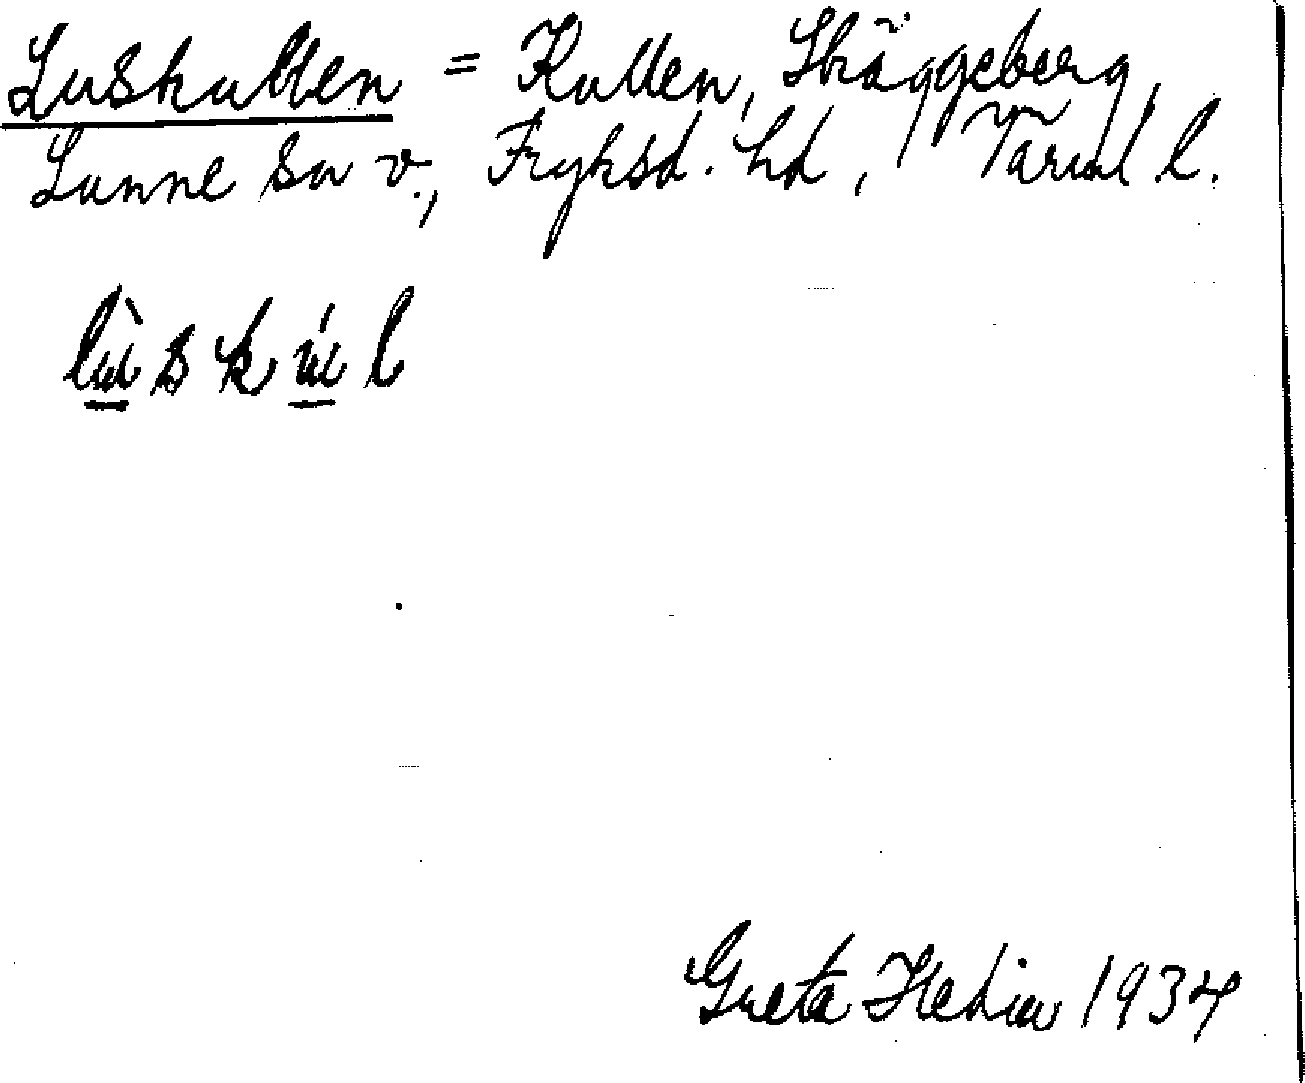 Luskullen = Kullen, Skäggeberg,
Sunne sn v., Fryksd. hd, Värml. l.
lùskúl
Greta Hedin 1934